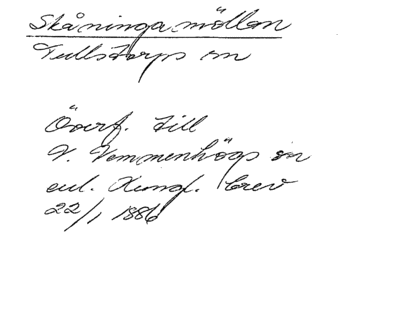 Skåninga möllan
Tullstorps sn
Överf. till
V. Vemmenhögs sn
enl. Kungl. brev
22/1 1886